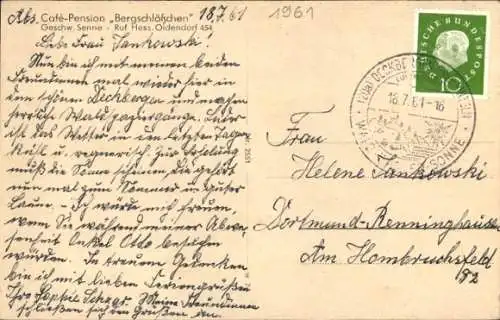 Abs. Café-Pension „Bergschlößchen" 18.7.61 1961
Geschw. Senne - Ruf Hess. Oldendorf 454
Liebe Frau Jankowski!
Nun bin ich mit meinen beiden
Freundinnen mal wieder hier in
dem schönen Deckbergen und machen
herrliche Waldspaziergänge. Leider
ist das Wetter in den letzten Tagen
kühl u. regnerisch. Zur Erholung
muß die Sonne scheinen, die gehört
nun mal zum Sommer u. guter
Laune. - Ich würde mich freuen,
wenn Sie während meiner Abwe-
senheit Onkel Otto besuchen
würden. In treuem Gedenken
bin ich mit lieben Feriengrüßen
Ihre Sophie
Meine Freundinnen
schließen sich den Grüßen an.
DEUTSCHE BUNDESPOST
10
DECKBERGEN
18.7.61-16
SONNE
2551
Frau
Helene Jankowski
Dortmund-Renninghausen
Am Hombruchsfeld